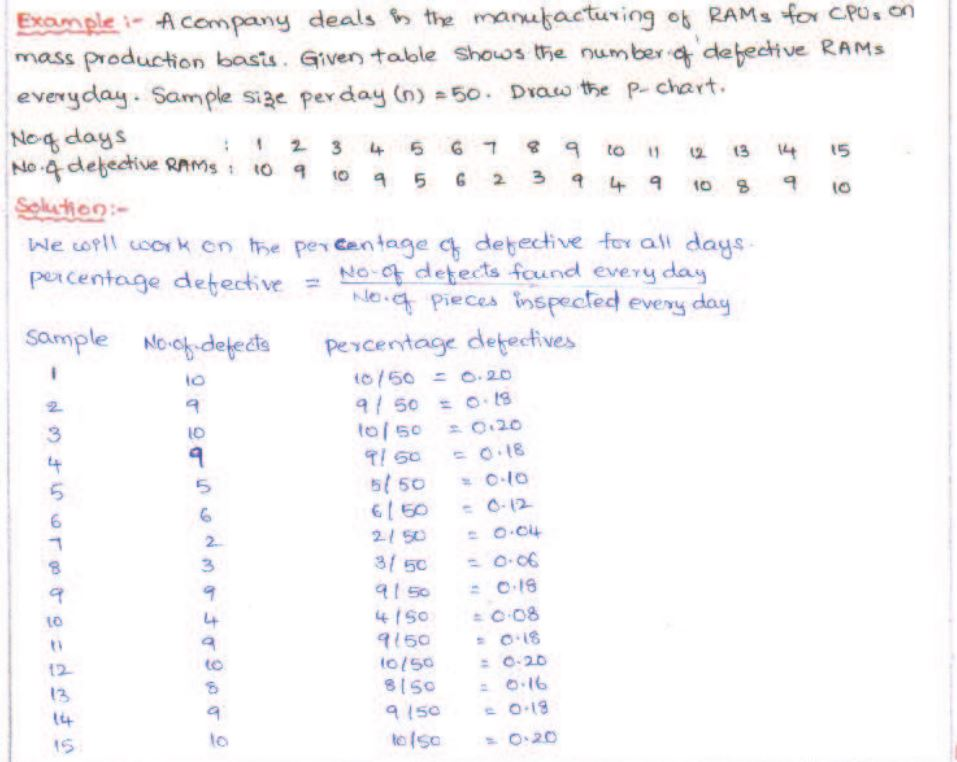 Example :- A company deals in the manufacturing of RAMs for CPUs on
mass production basis. Given table shows the number of defective RAMs
everyday. Sample size per day (n) = 50. Draw the p-chart.
No.of days : 1 2 3 4 5 6 7 8 9 10 11 12 13 14 15
No.of defective RAMs : 10 9 10 9 5 6 2 3 9 4 9 10 8 9 10
Solution:-
We will work on the percentage of defective for all days.
percentage defective = No.of defects found every day
No.of pieces inspected every day
Sample No.of.defects percentage defectives
1 10 10/50 = 0.20
2 9 9/50 = 0.18
3 10 10/50 = 0.20
4 9 9/50 = 0.18
5 5 5/50 = 0.10
6 6 6/50 = 0.12
7 2 2/50 = 0.04
8 3 3/50 = 0.06
9 9 9/50 = 0.18
10 4 4/50 = 0.08
11 9 9/50 = 0.18
12 10 10/50 = 0.20
13 8 8/50 = 0.16
14 9 9/50 = 0.18
15 10 10/50 = 0.20